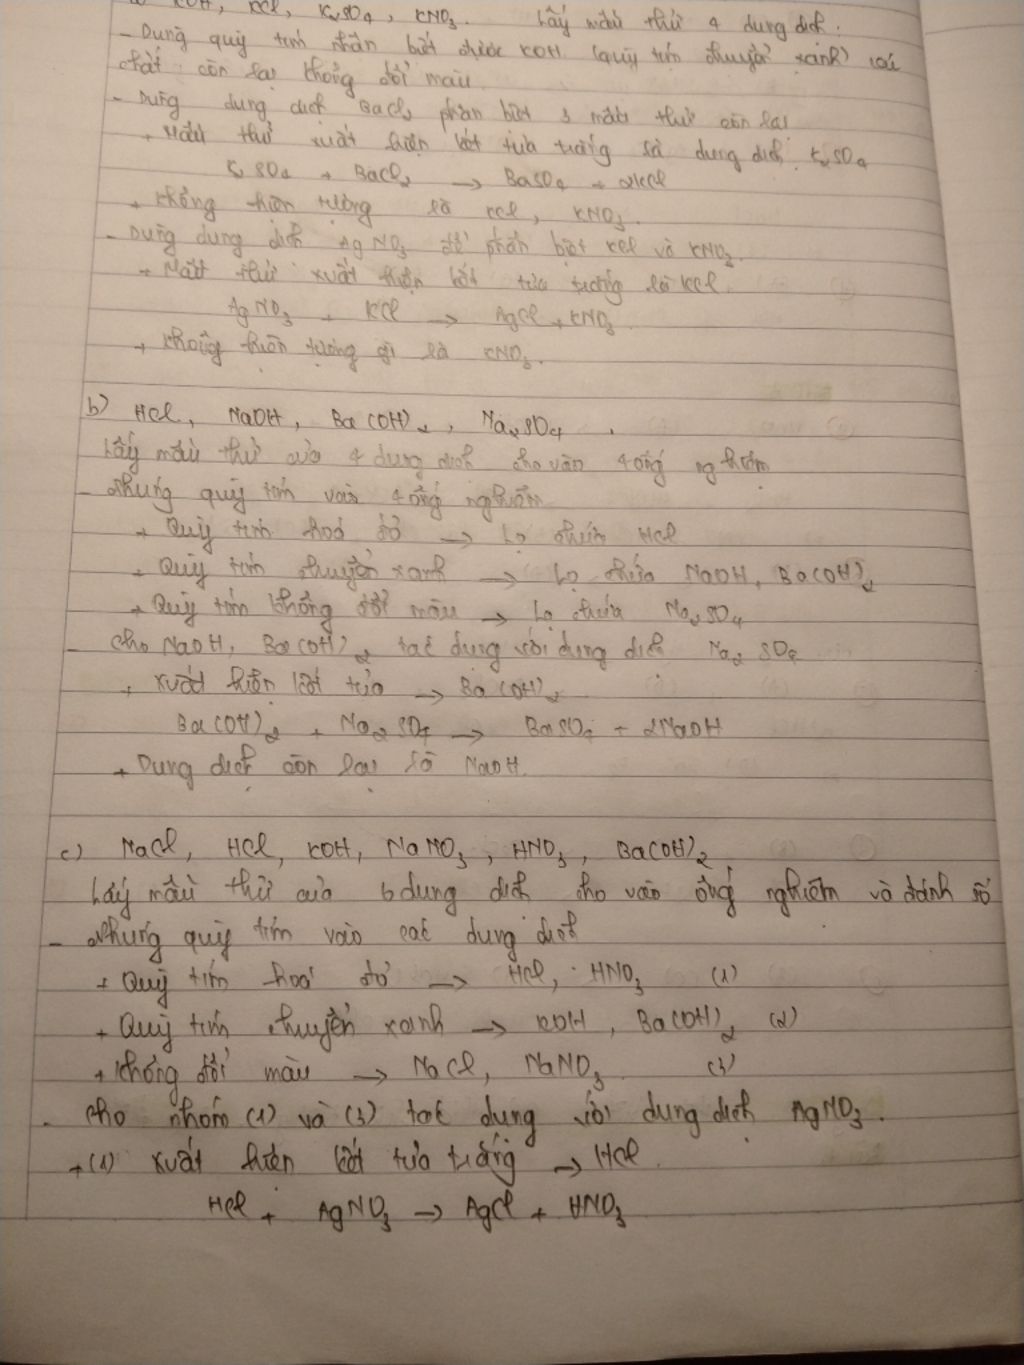 KOH, KCl, K₂SO₄, KNO₃. Lấy mẫu thử 4 dung dịch.
- Dùng quỳ tím nhận biết được KOH (quỳ tím chuyển xanh) các
chất còn lại không đổi màu.
- Dùng dung dịch BaCl₂ phân biệt 3 mẫu thử còn lại
+ Mẫu thử xuất hiện kết tủa trắng là dung dịch K₂SO₄
K₂SO₄ + BaCl₂ → BaSO₄ + 2KCl
+ Không hiện tượng là KCl, KNO₃.
- Dùng dung dịch AgNO₃ để phân biệt KCl và KNO₃.
+ Mẫu thử xuất hiện kết tủa trắng là KCl.
AgNO₃ + KCl → AgCl + KNO₃.
+ Không hiện tượng gì là KNO₃.
b) HCl, NaOH, Ba(OH)₂, Na₂SO₄.
Lấy mẫu thử của 4 dung dịch cho vào 4 ống nghiệm
- Nhúng quỳ tím vào 4 ống nghiệm
+ Quỳ tím hoá đỏ → Lọ chứa HCl
+ Quỳ tím chuyển xanh → Lọ chứa NaOH, Ba(OH)₂
+ Quỳ tím không đổi màu → Lọ chứa Na₂SO₄
- Cho NaOH, Ba(OH)₂ tác dụng với dung dịch Na₂SO₄
+ Xuất hiện kết tủa → Ba(OH)₂
Ba(OH)₂ + Na₂SO₄ → BaSO₄ + 2NaOH
+ Dung dịch còn lại là NaOH.
c) NaCl, HCl, KOH, NaNO₃, HNO₃, Ba(OH)₂
Lấy mẫu thử của 6 dung dịch cho vào ống nghiệm và đánh số
- Nhúng quỳ tím vào các dung dịch
+ Quỳ tím hoá đỏ → HCl, HNO₃ (1)
+ Quỳ tím chuyển xanh → KOH, Ba(OH)₂ (2)
+ Không đổi màu → NaCl, NaNO₃ (3)
- Cho nhóm (1) và (3) tác dụng với dung dịch AgNO₃.
+ (1) Xuất hiện kết tủa trắng → HCl.
HCl + AgNO₃ → AgCl + HNO₃